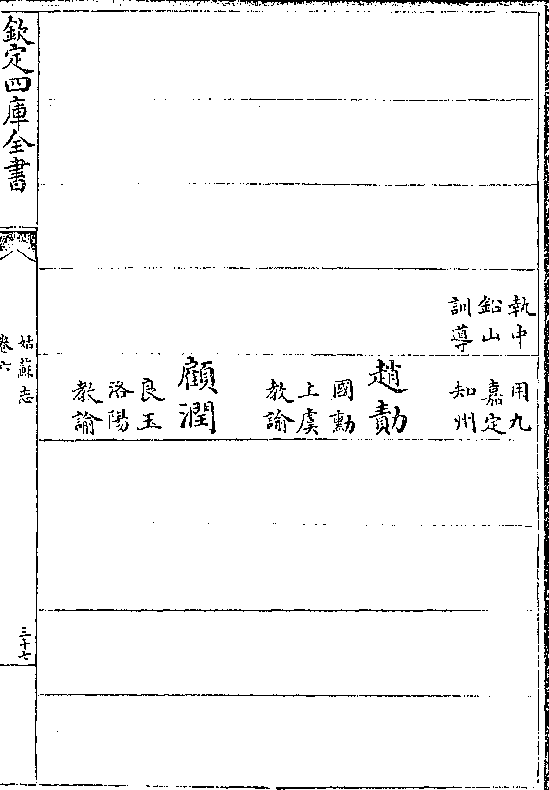 執中
鉛山
訓導
用九
嘉定
知州
趙勣
國勳
上虞
教諭
顧潤
良玉
洛陽
教諭
欽定四庫全書
姑蘇志
卷六
三十七